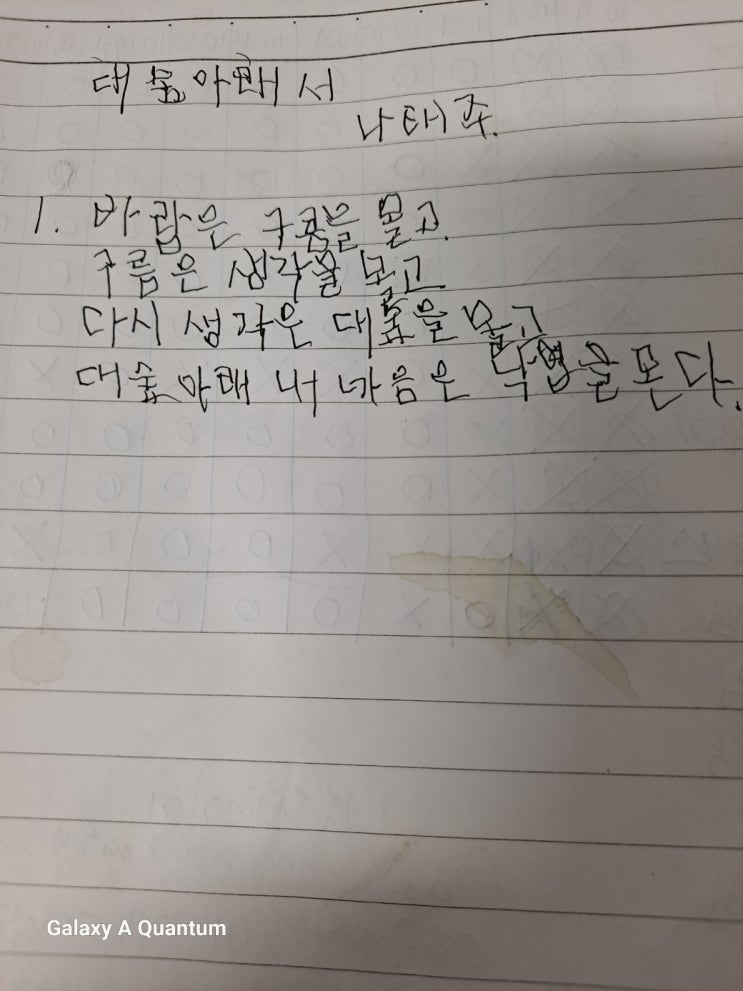 대숲아래서
나태주.
1. 바람은 구름을 몰고
구름은 생각을 몰고
다시 생각은 대숲을 몰고
대숲 아래 내 마음은 낙엽을 몬다.
Galaxy A Quantum